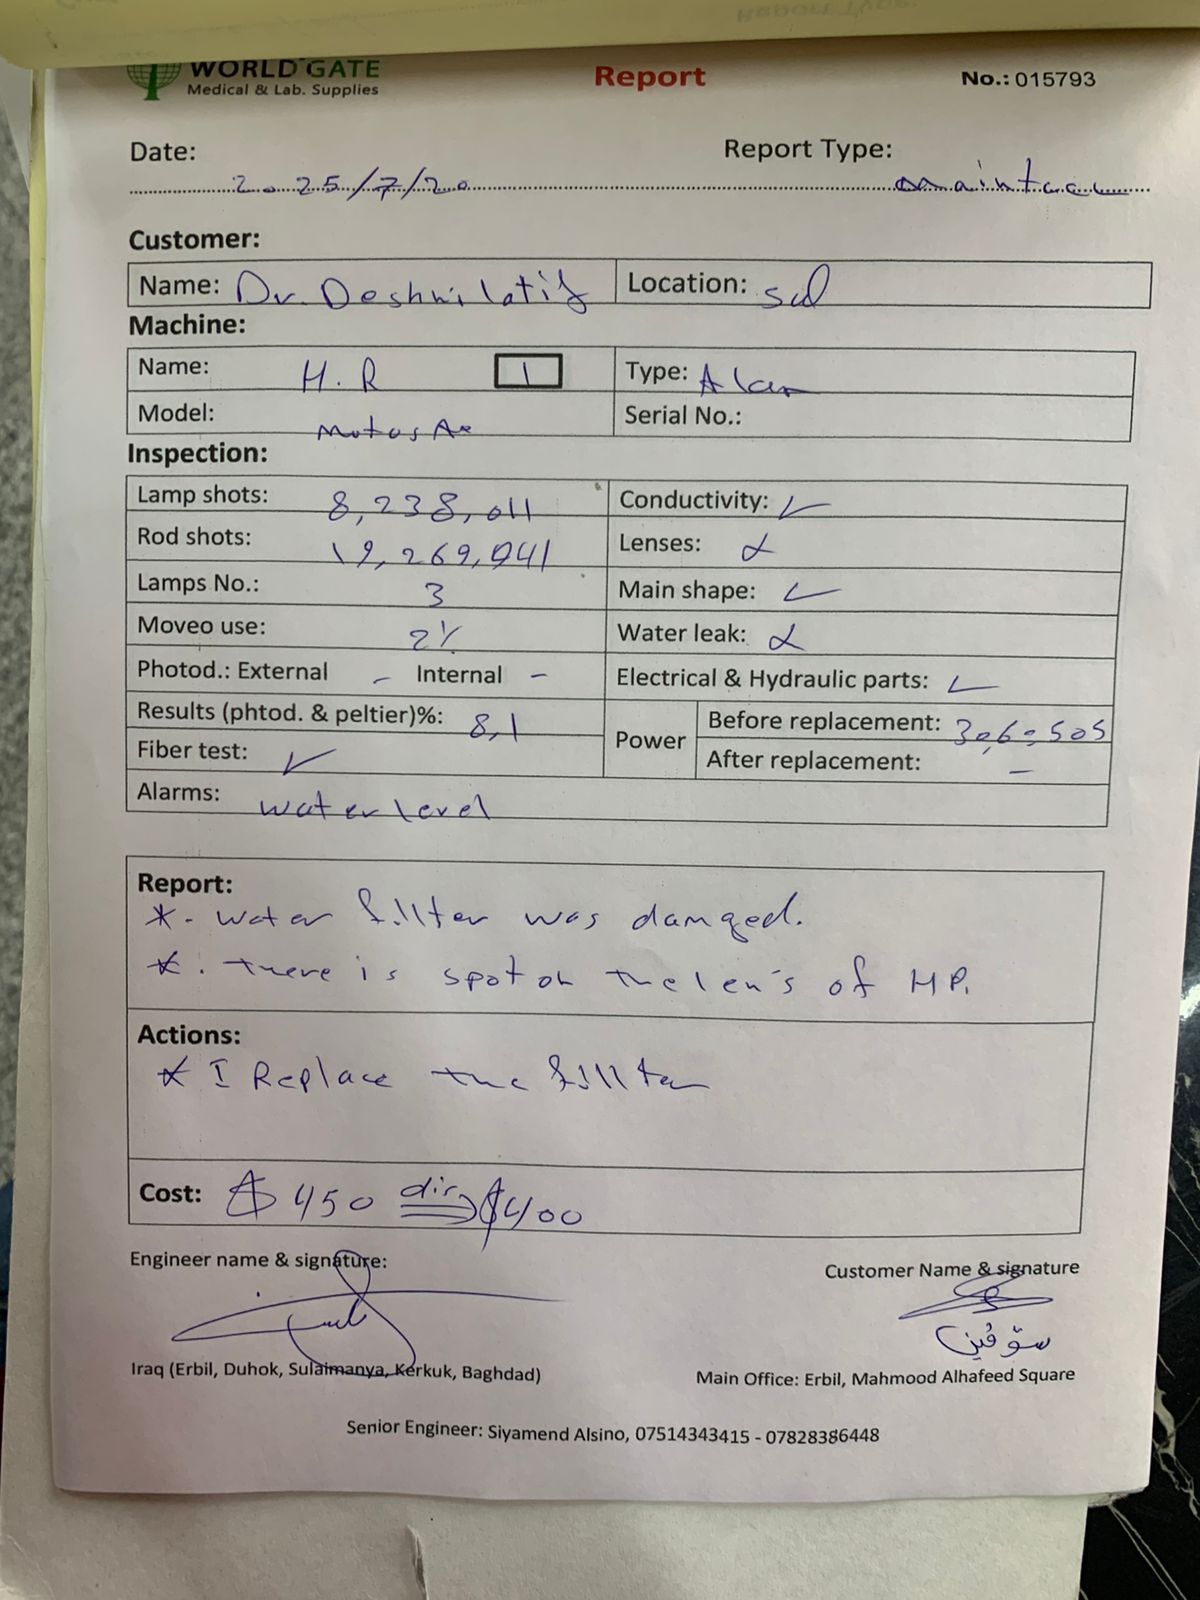 WORLD GATE
Medical & Lab. Supplies
Report
No.: 015793
Date: 2025/7/20
Report Type:
Customer:
Name: Dr. Deshni latif
Location: sul
Machine:
Name: H.R 1
Type: Alex
Model: Motus Ax
Serial No.:
Inspection:
Lamp shots: 8,238,011
Conductivity: ✓
Rod shots: 19,269,041
Lenses:
Lamps No.: 3
Main shape: ✓
Moveo use: 2%
Water leak:
Photod.: External - Internal -
Electrical & Hydraulic parts: ✓
Results (phtod. & peltier)%: 8,1
Power
Before replacement:
Fiber test: ✓
After replacement: -
Alarms: water level
Report:
*- water fillter was damged.
*. there is spot on the len's of HP.
Actions:
* I Replace the fillter
Cost: $ 450 dis $400
Engineer name & signature:
Customer Name & signature
سۆڤین
Iraq (Erbil, Duhok, Sulaimanya, Kerkuk, Baghdad)
Main Office: Erbil, Mahmood Alhafeed Square
Senior Engineer: Siyamend Alsino, 07514343415 - 07828386448